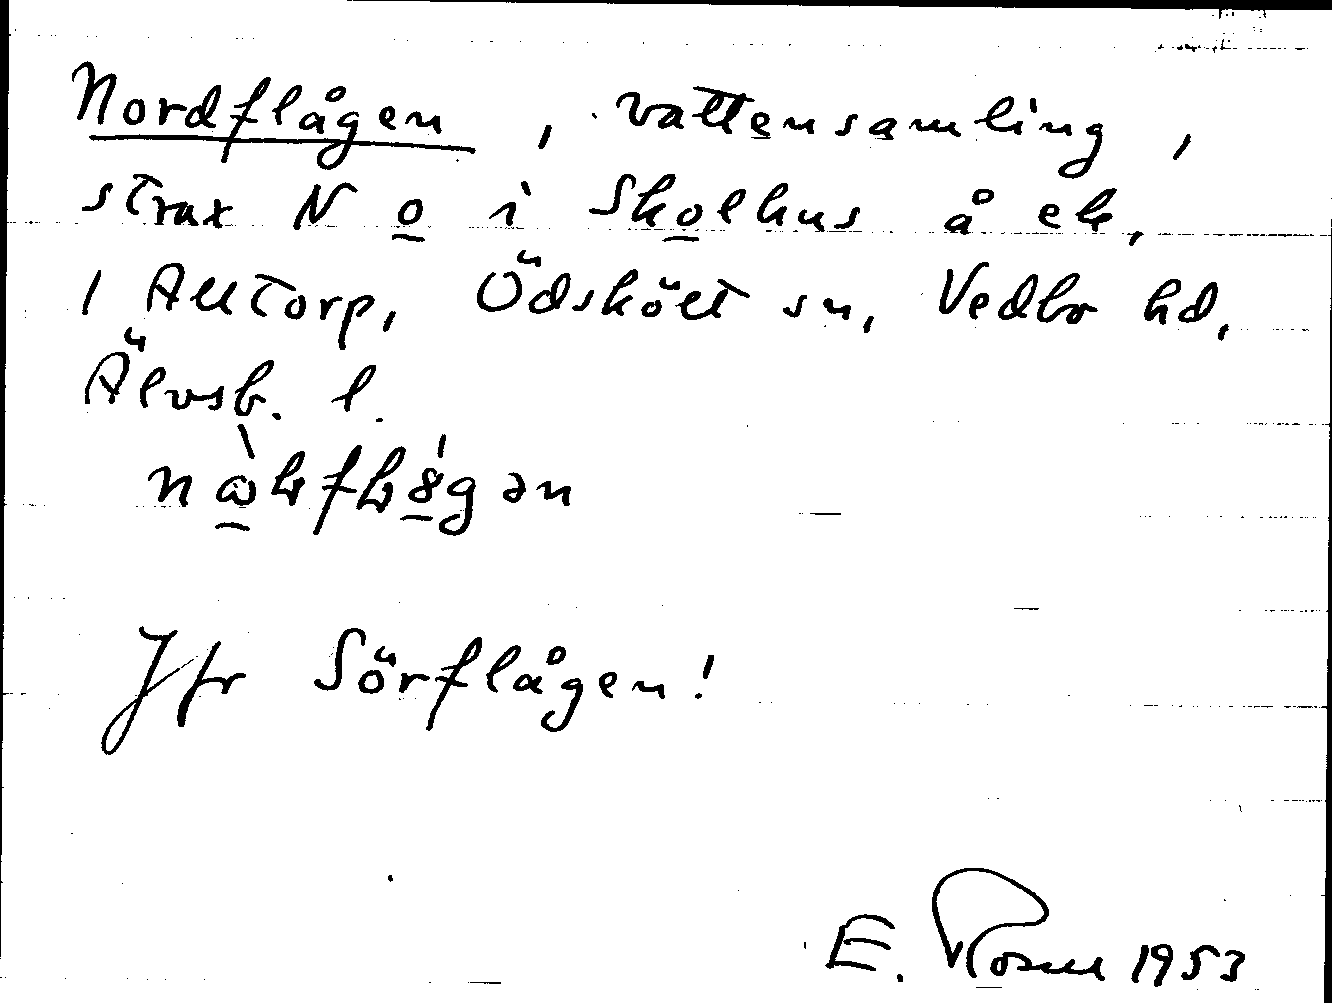 Nordflågen, vattensamling,
strax N o i Skolhus å ek,
1 Alltorp, Ödskölt sn, Vedbo hd,
Älvsb. l.
Jfr Sörflågen!
E. Rosell 1953